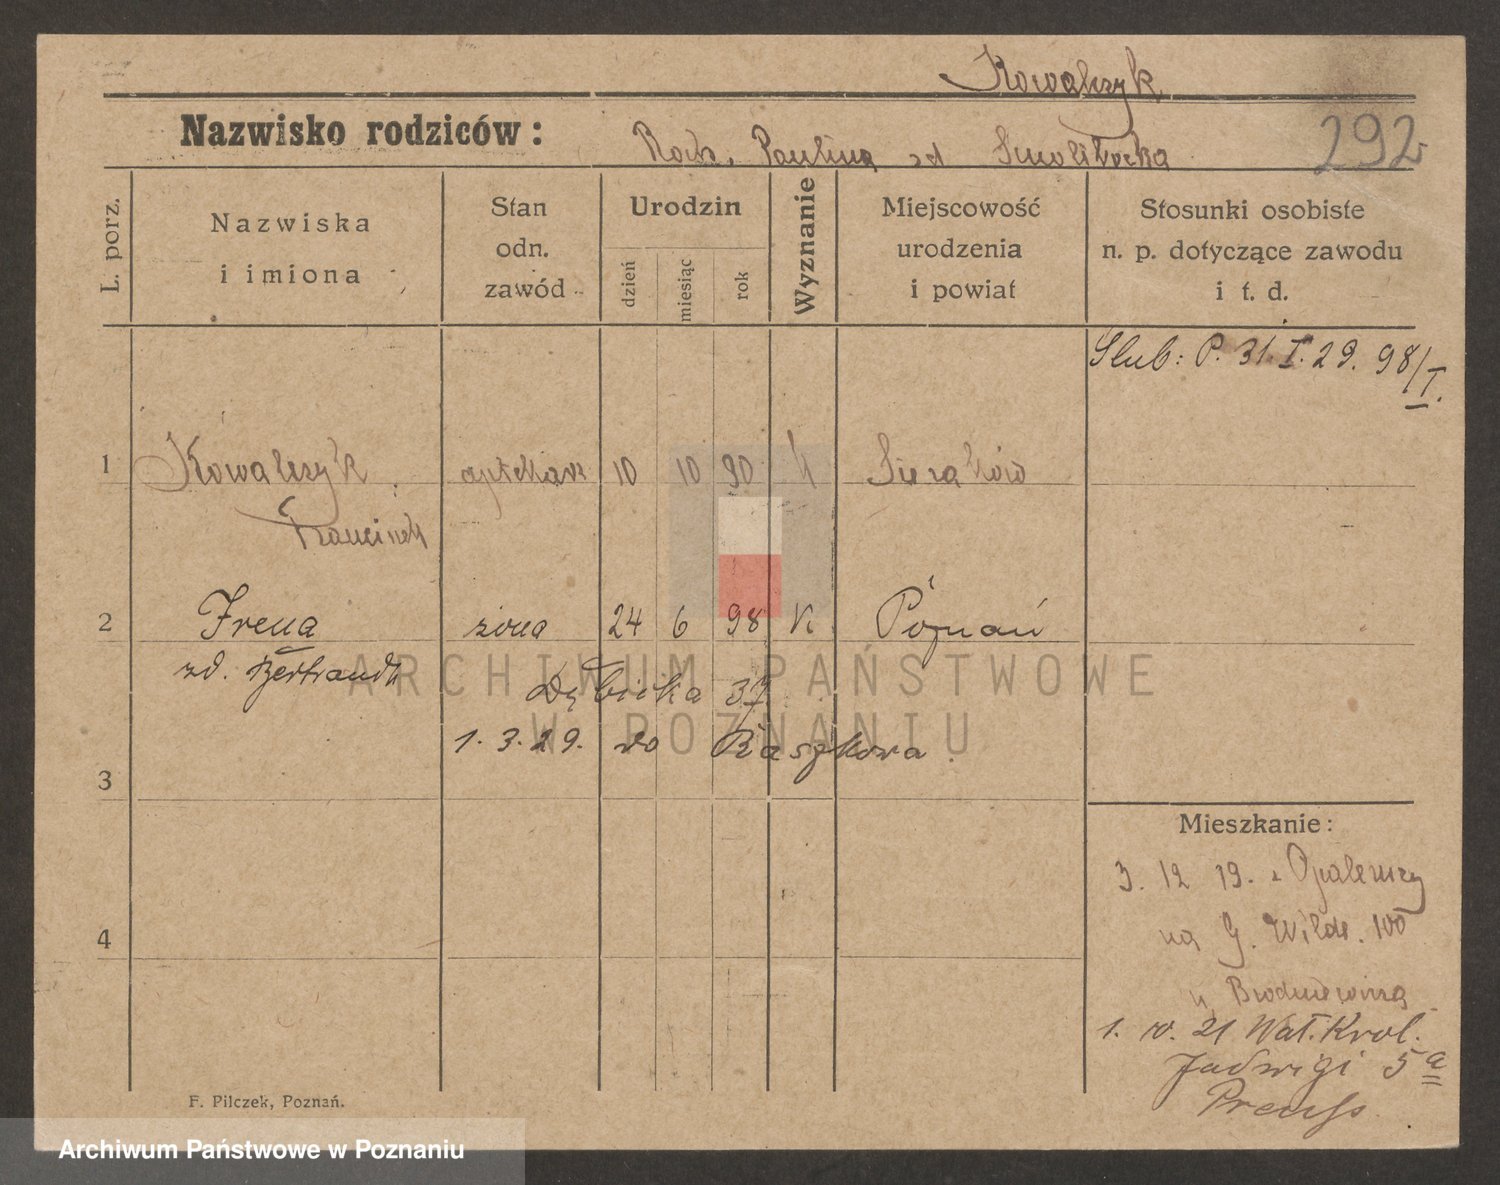 Kowalczyk
Nazwisko rodziców:
Paulina zd
292
L. porz.
Nazwiska
i imiona
Stan
odn.
zawód
Urodzin
dzień
miesiąc
rok
Wyznanie
Miejscowość
urodzenia
i powiat
Stosunki osobiste
n. p. dotyczące zawodu
i t. d.
Slub: P. 31. I. 29. 98/I.
1 Kowalczyk aptekarz 10 10 90 k Sieraków
Franciszek
2 Irena żona 24 6 98 K Poznań
zd. Bertrandt
Dębicka 37
1. 3. 29. do Raszkowa.
3
4
Mieszkanie:
3. 12 19. z Opalenicy
na G. Wilde. 100
u
1. 10. 21 Wał. Krol.
Jadwigi 5 a
Preuss.
F. Pilczek, Poznań.
ARCHIWUM PAŃSTWOWE
W POZNANIU
Archiwum Państwowe w Poznaniu